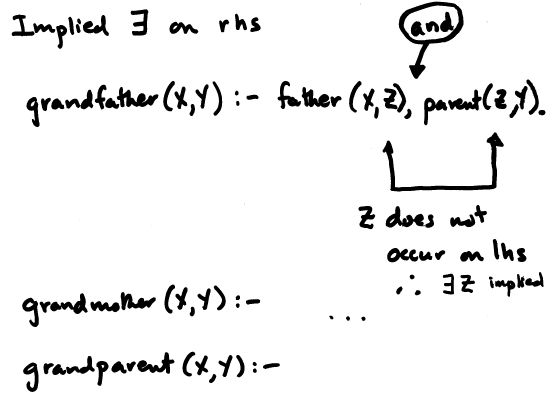 Implied ∃ on rhs
and
grandfather (X,Y) :- father (X,Z), parent(Z,Y).
Z does not
occur on lhs
∴ ∃Z implied
grandmother (X,Y) :- ...
grandparent (X,Y) :-